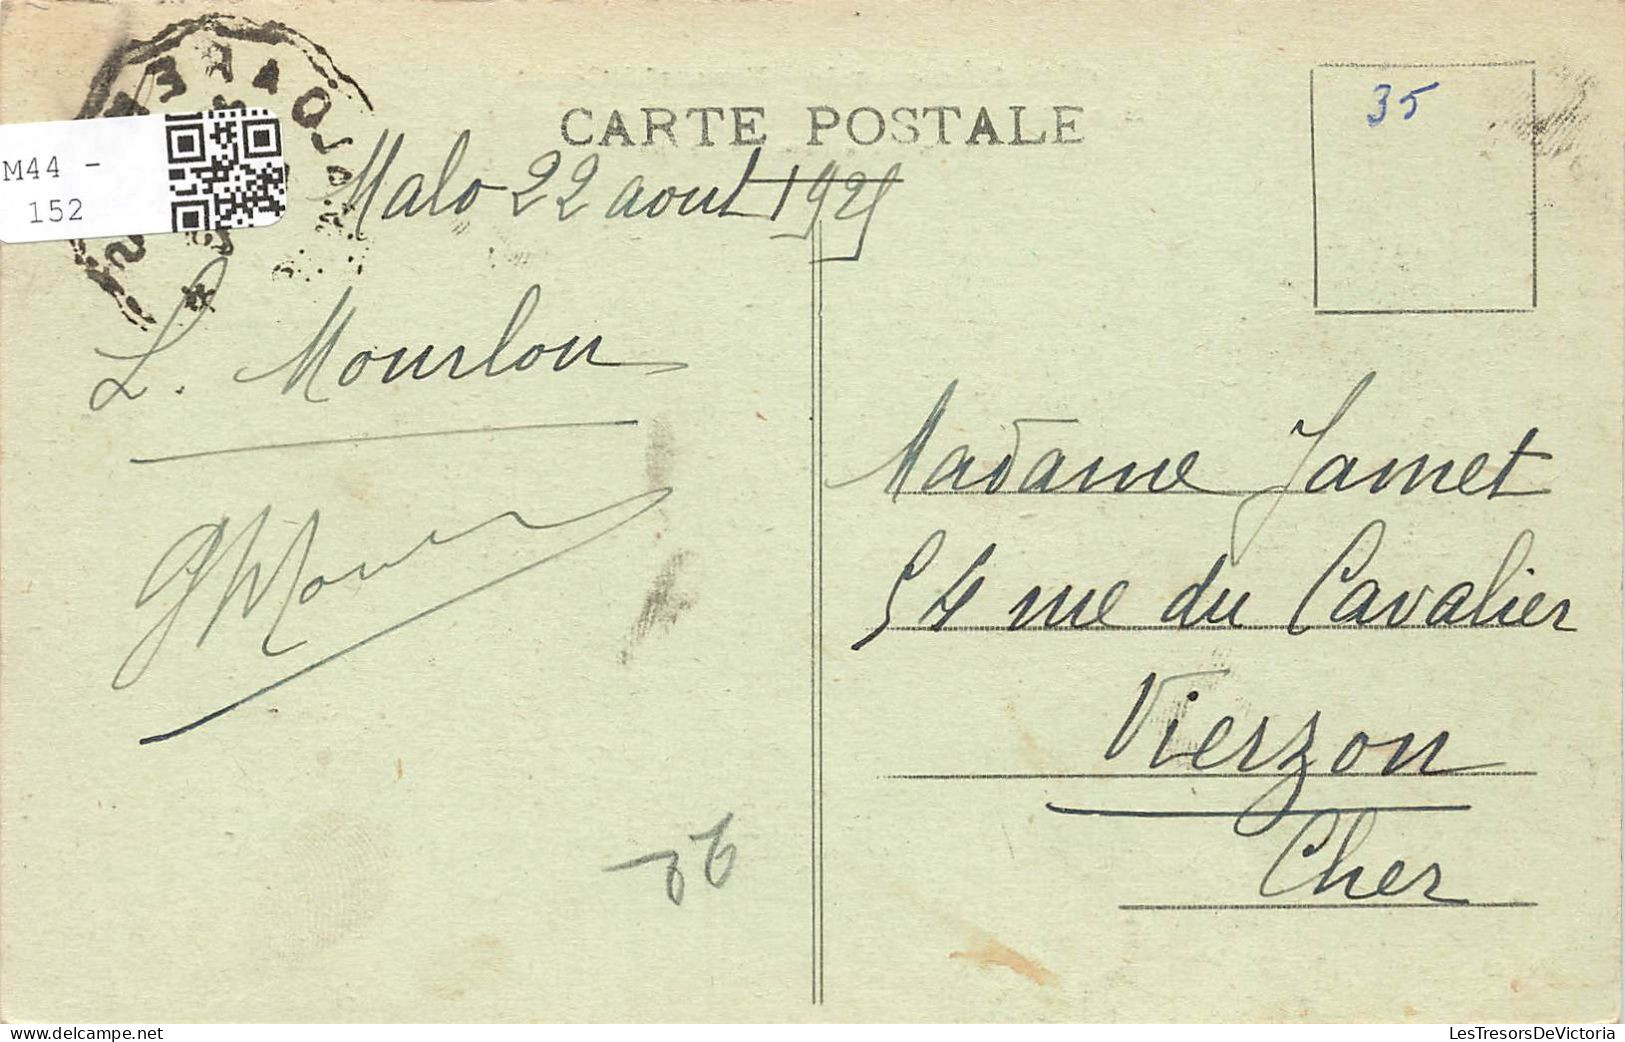 CARTE POSTALE
35
M44 -
152
Malo 22 aout 1925
L. Mourlon
Madame Jamet
54 rue du Cavalier
Vierzon
Cher
LesTresorsDeVictoria
www.delcampe.net